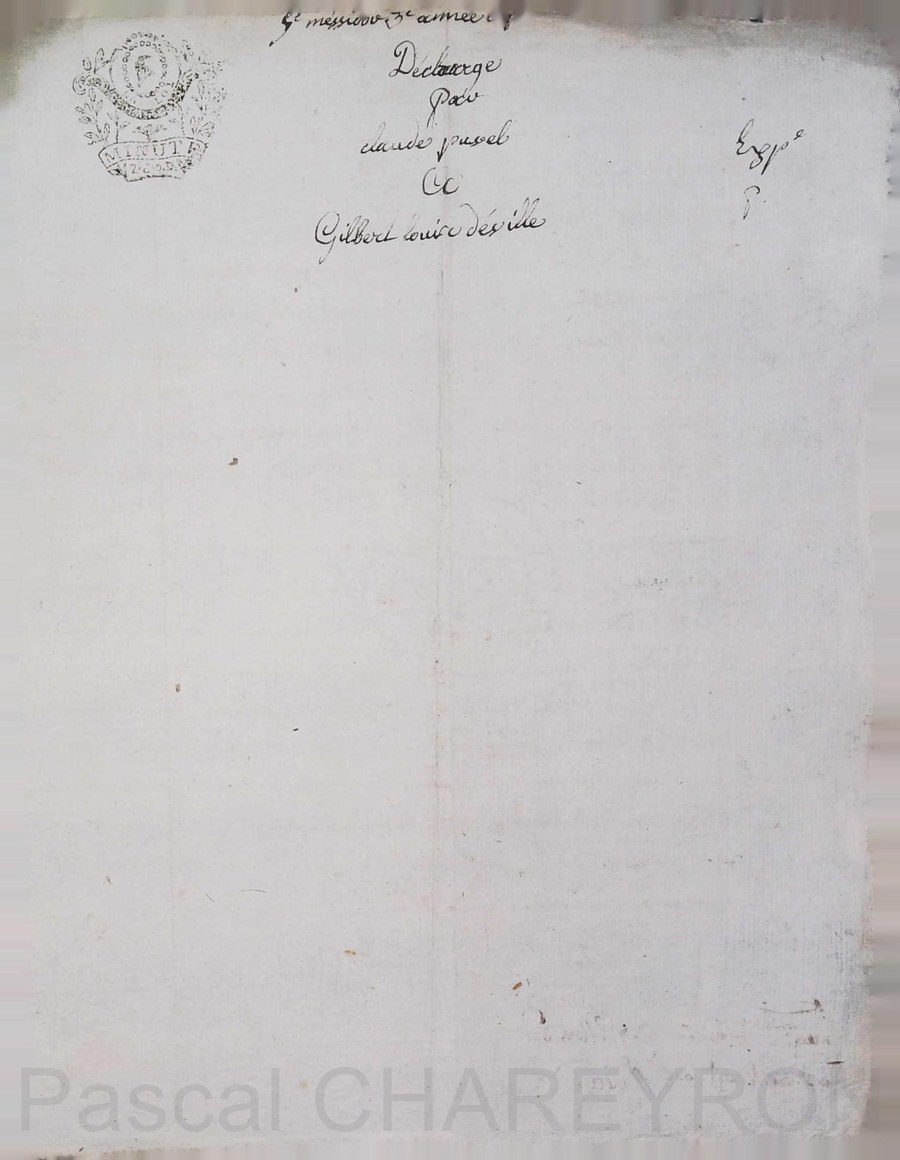 messidor 3e année
Décharge
Par
claude pusel
Ac
Gilbert louis déville
Expe
P.
MINUTE
Pascal CHAREYRON